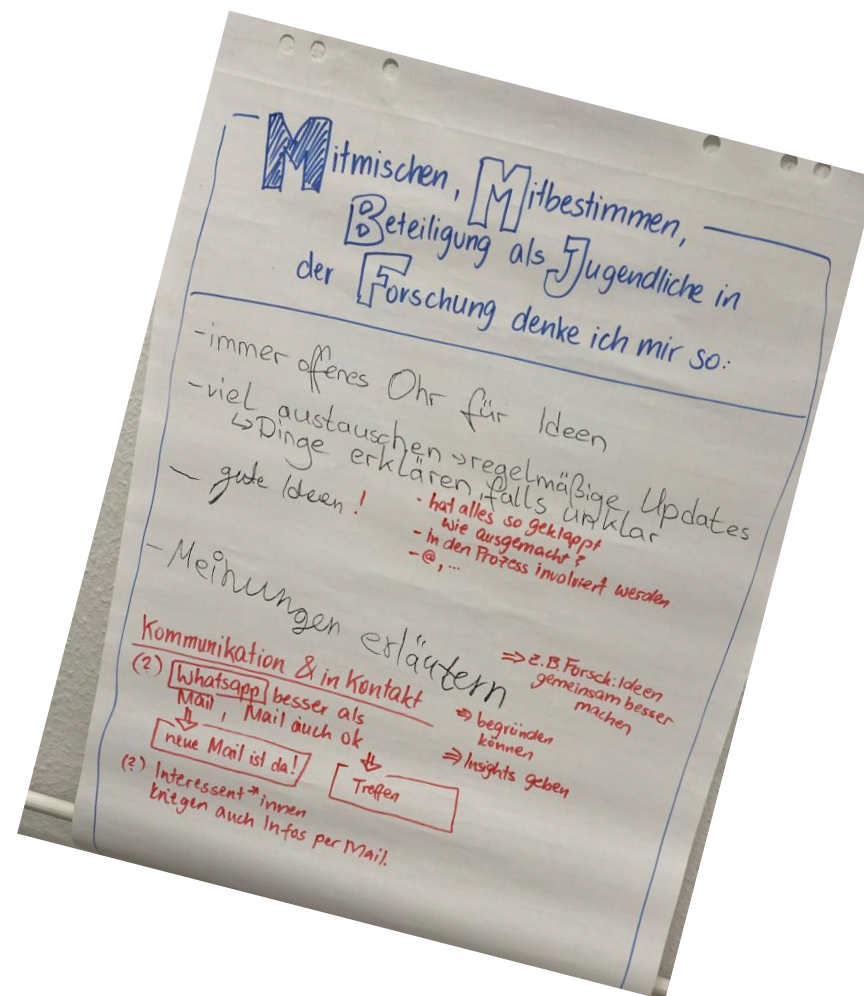 Mitmischen, Mitbestimmen,
Beteiligung als Jugendliche in
der Forschung denke ich mir so:
-immer offenes Ohr für Ideen
-viel austauschen →regelmäßige Updates
↳Dinge erklären, falls unklar
- gute Ideen!
- hat alles so geklappt
wie ausgemacht?
- in den Prozess involviert werden
- @, ...
-Meinungen erläutern
⇒ z.B. Forsch.:Ideen
gemeinsam besser
machen
⇒ begründen
können
⇒ Insights geben
Kommunikation & in Kontakt
(?) Whatsapp besser als
Mail, Mail auch ok
⇓
neue Mail ist da!
⇓
Treffen
(?) Interessent*innen
kriegen auch Infos per Mail.